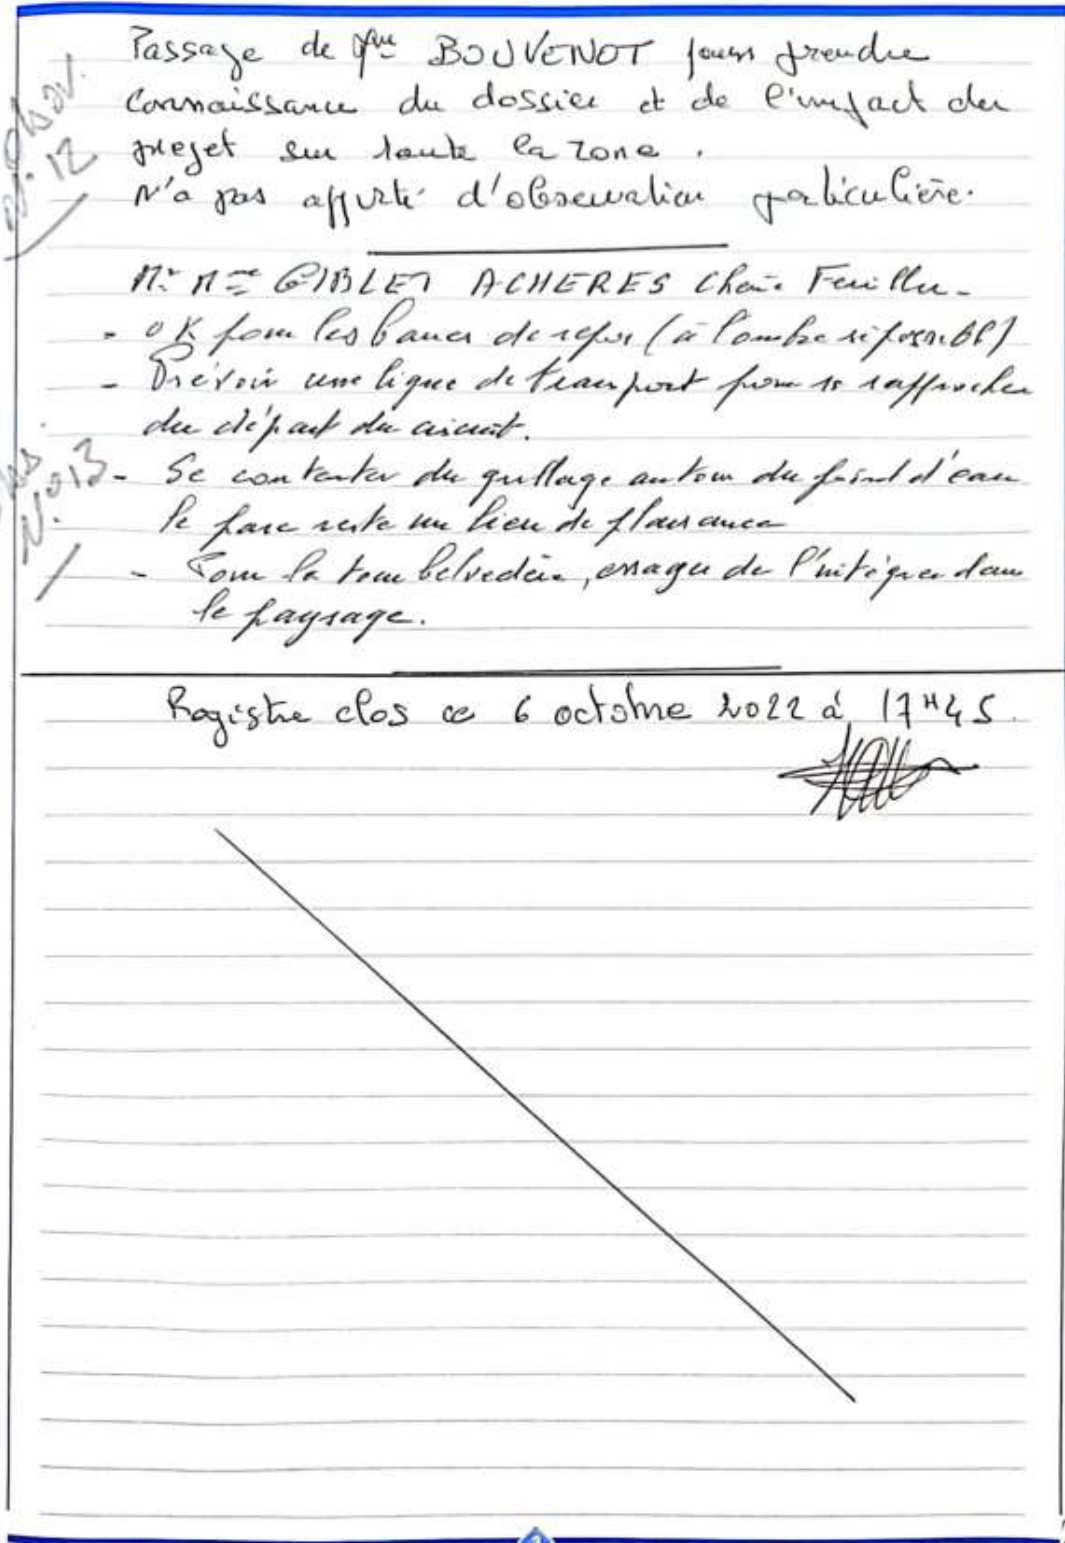 Passage de Mme BOUVENOT pour prendre
connaissance du dossier et de l'impact du
projet sur toute la zone.
N'a pas apporté d'observation particulière.
Observ.
n. 12
Mr Mme GIBLET ACHERES Chêne Feuillu -
- OK pour les bancs de repos (à l'ombre si possible)
- Prévoir une ligne de transport pour se rapprocher
du départ du circuit.
Obs.
N. 013
- Se contenter du grillage autour du point d'eau
le parc reste un lieu de plaisance
- Pour la tour belvedère, essayer de l'intégrer dans
le paysage.
Registre clos ce 6 octobre 2022 à 17H45.